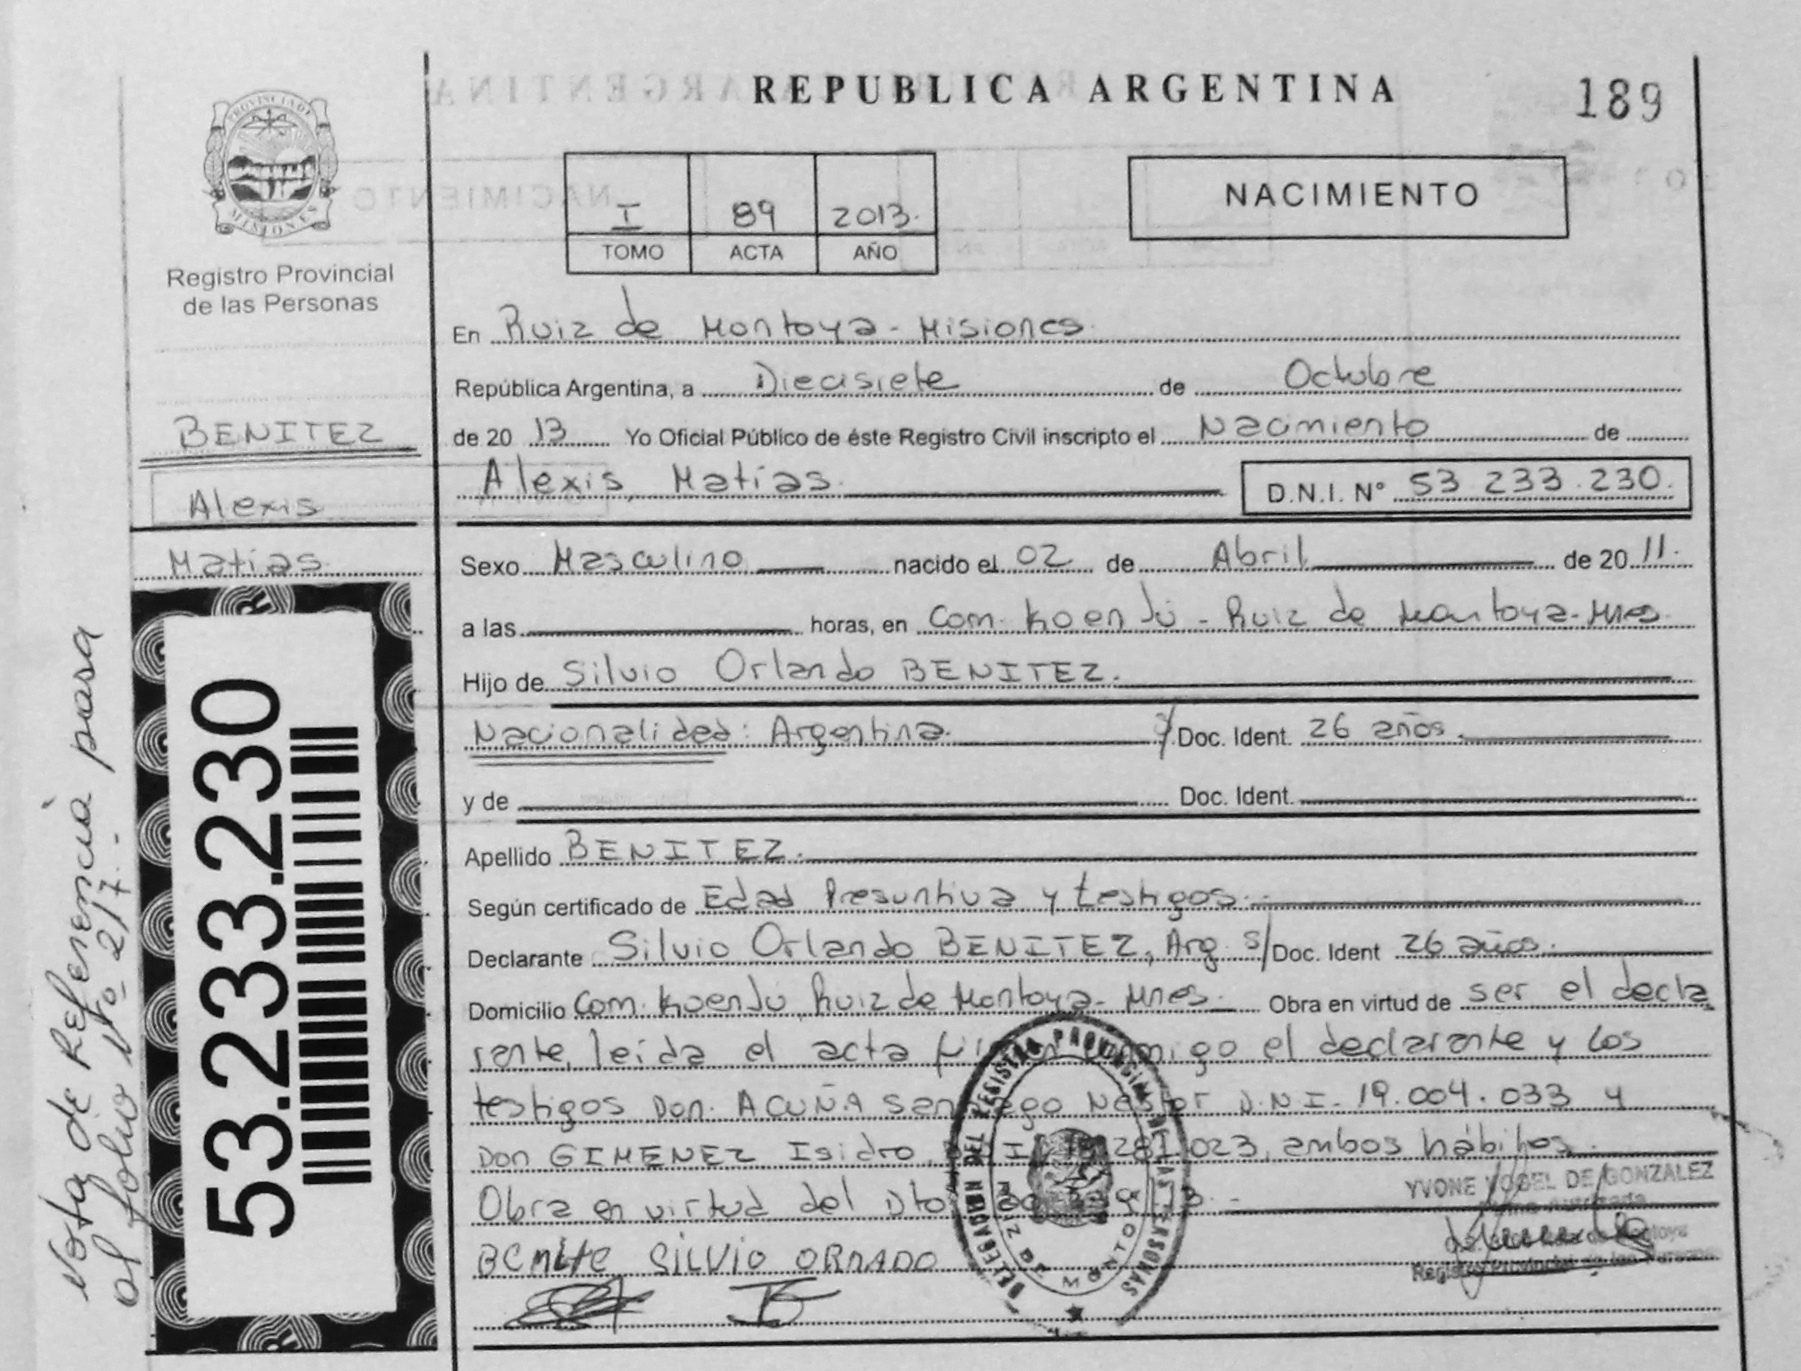 REPUBLICA ARGENTINA
189
PROVINCIA DE
MISIONES
Registro Provincial
de las Personas
I 89 2013.
TOMO ACTA AÑO
NACIMIENTO
En Ruiz de Montoya - Misiones.
República Argentina, a Diecisiete de Octubre
de 20 13 Yo Oficial Público de éste Registro Civil inscripto el Nacimiento de
Alexis, Matías. D.N.I. Nº 53 233.230.
BENITEZ
Alexis
Matías.
Sexo Masculino nacido el 02 de Abril de 20 11.
a las horas, en Com. Koenjú - Ruiz de Montoya - Mnes.
Hijo de Silvio Orlando BENITEZ.
Nacionalidad: Argentina. S/ Doc. Ident. 26 años.
y de Doc. Ident.
Apellido BENITEZ.
Según certificado de Edad Presuntiva y testigos.
Declarante Silvio Orlando BENITEZ, Arg. S/ Doc. Ident 26 años.
Domicilio Com. Koenjú, Ruiz de Montoya - Mnes. Obra en virtud de ser el decla
rante, leída el acta el declarante y los
testigos Don. ACUÑA Santiago Nestor D.N.I. 19.004.033 y
Don GIMENEZ Isidro, 023, ambos hábiles.
Obra en virtud del Dto
BENITE SILVIO ORNADO
53.233.230
Nota de Referencia pasa
al folio Nº 217.-
DELEGACION DEL REGISTRO PROVINCIAL DE LAS PERSONAS
RUIZ DE MONTOYA
YVONE VOGEL DE GONZALEZ
Registro Provincial de las Personas